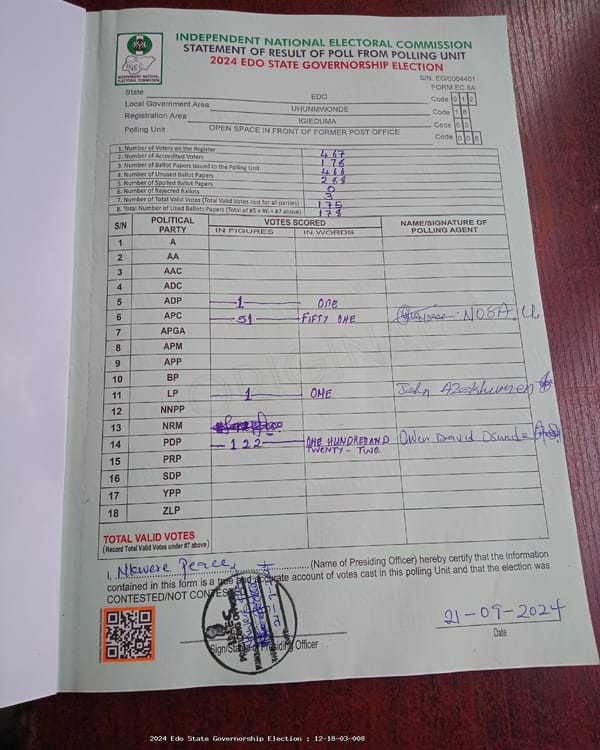 INDEPENDENT NATIONAL ELECTORAL COMMISSION
STATEMENT OF RESULT OF POLL FROM POLLING UNIT
2024 EDO STATE GOVERNORSHIP ELECTION
S/N: EG/0004401
FORM EC 8A
State EDO Code 0 1 2
Local Government Area UHUNMWONDE Code 1 8
Registration Area IGIEDUMA Code 0 3
Polling Unit OPEN SPACE IN FRONT OF FORMER POST OFFICE Code 0 0 8
1. Number of Voters on the Register 467
2. Number of Accredited Voters 178
3. Number of Ballot Papers Issued to the Polling Unit 466
4. Number of Unused Ballot Papers 288
5. Number of Spoiled Ballot Papers 0
6. Number of Rejected Ballots 3
7. Number of Total Valid Votes (Total Valid Votes cast for all parties) 175
8. Total Number of Used Ballots Papers (Total of #5 + #6 + #7 above) 178
S/N POLITICAL PARTY VOTES SCORED NAME/SIGNATURE OF POLLING AGENT
IN FIGURES IN WORDS
1 A
2 AA
3 AAC
4 ADC
5 ADP 1 ONE
6 APC 51 FIFTY ONE NOSA. U.
7 APGA
8 APM
9 APP
10 BP
11 LP 1 ONE John
12 NNPP
13 NRM
14 PDP 122 ONE HUNDRED AND TWENTY-TWO Owen David
15 PRP
16 SDP
17 YPP
18 ZLP
TOTAL VALID VOTES
(Record Total Valid Votes under #7 above)
I, Nkwere Peace, (Name of Presiding Officer) hereby certify that the information
contained in this form is a true and accurate account of votes cast in this polling Unit and that the election was
CONTESTED/NOT CONTES
21-09-2024
Date
Sign/Sta Presiding Officer
2024 Edo State Governorship Election : 12-18-03-008